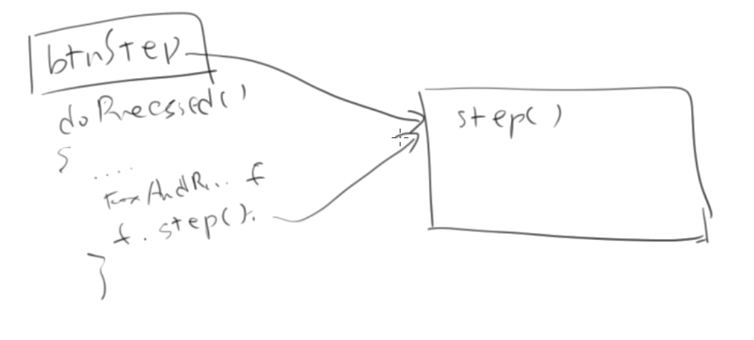 btnStep
doPrecssed()
{
....
FoxAndR... f
f.step();
}
step()